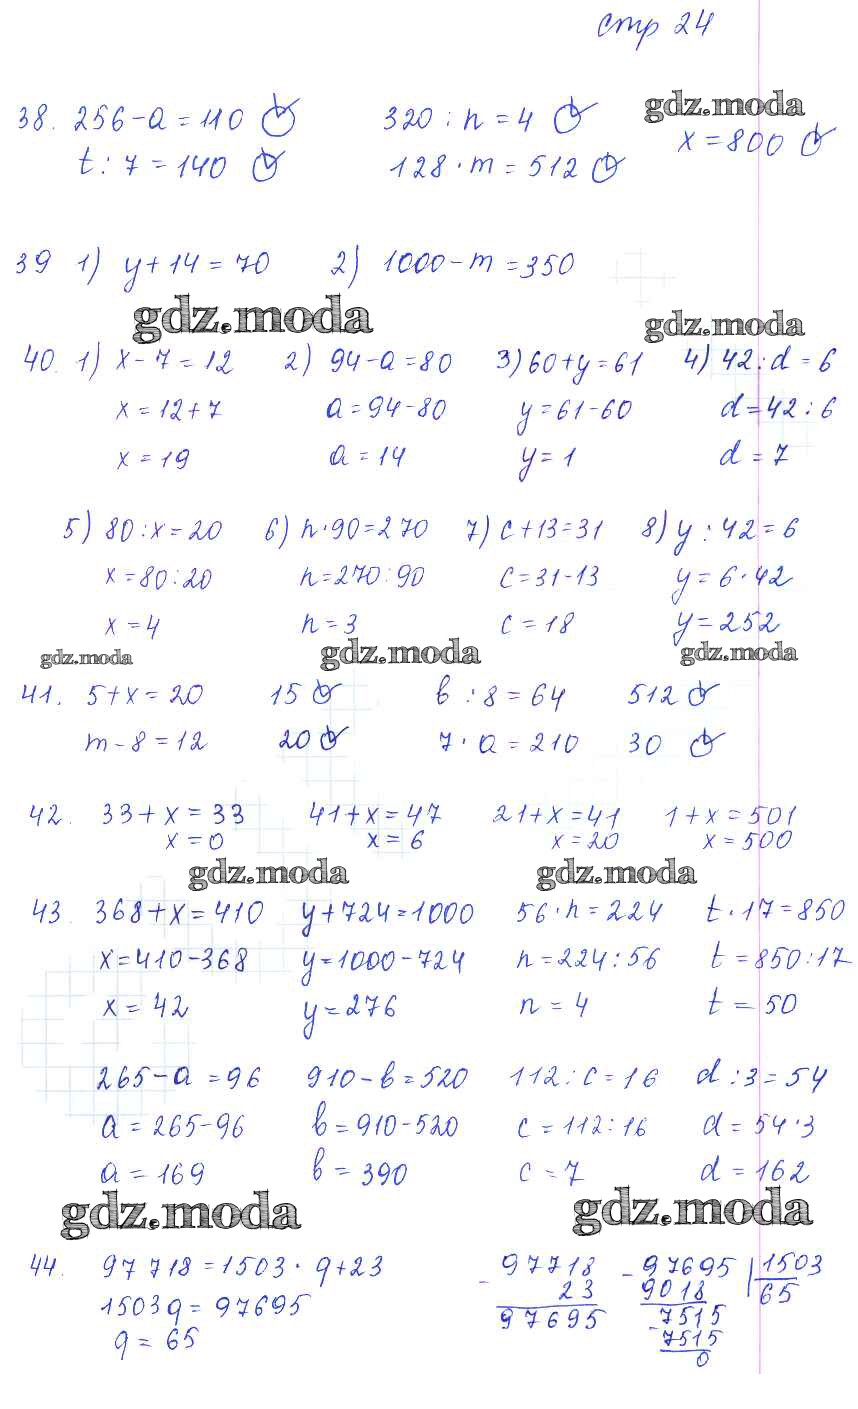 стр 24
38. 256 - a = 110 320 : n = 4 gdz.moda
x = 800
t : 7 = 140 128 · m = 512
39 1) y + 14 = 70 2) 1000 - m = 350
gdz.moda gdz.moda
40. 1) x - 7 = 12 2) 94 - a = 80 3) 60 + y = 61 4) 42 : d = 6
x = 12 + 7 a = 94 - 80 y = 61 - 60 d = 42 : 6
x = 19 a = 14 y = 1 d = 7
5) 80 : x = 20 6) n · 90 = 270 7) c + 13 = 31 8) y : 42 = 6
x = 80 : 20 n = 270 : 90 c = 31 - 13 y = 6 · 42
x = 4 n = 3 c = 18 y = 252
gdz.moda gdz.moda gdz.moda
41. 5 + x = 20 15 b : 8 = 64 512
m - 8 = 12 20 7 · a = 210 30
42. 33 + x = 33 41 + x = 47 21 + x = 41 1 + x = 501
x = 0 x = 6 x = 20 x = 500
gdz.moda gdz.moda
43. 368 + x = 410 y + 724 = 1000 56 · n = 224 t · 17 = 850
x = 410 - 368 y = 1000 - 724 n = 224 : 56 t = 850 : 17
x = 42 y = 276 n = 4 t = 50
265 - a = 96 910 - b = 520 112 : c = 16 d : 3 = 54
a = 265 - 96 b = 910 - 520 c = 112 : 16 d = 54 · 3
a = 169 b = 390 c = 7 d = 162
gdz.moda gdz.moda
44. 97 718 = 1503 · q + 23 - 97718 - 97695 | 1503
1503 q = 97695 23 9018 65
q = 65 97695 7515
- 7515
0